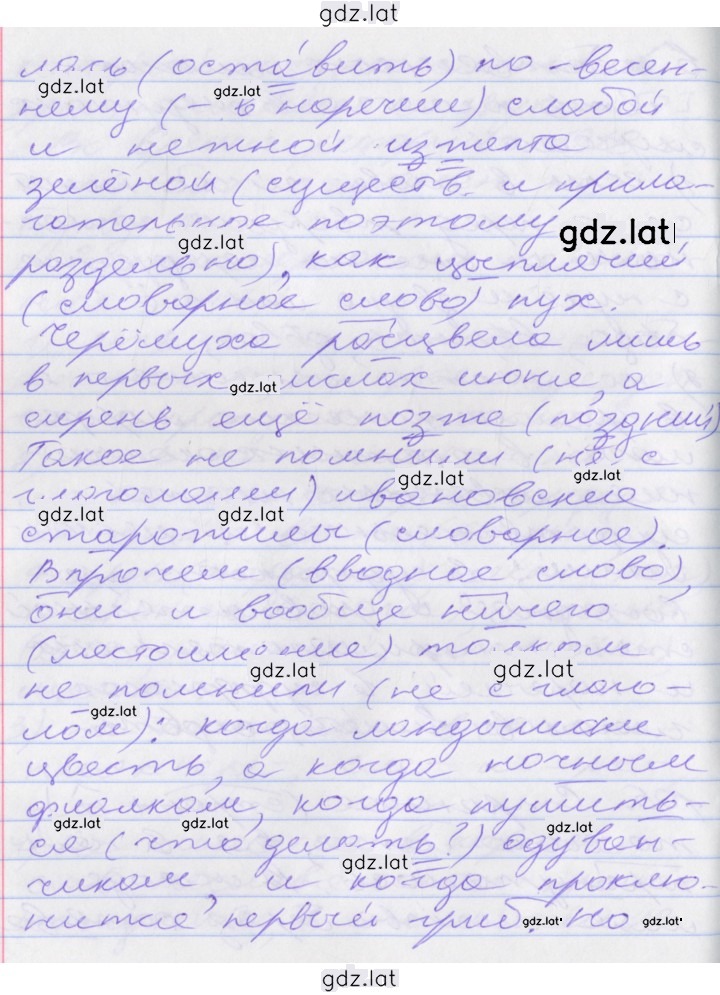 gdz.lat
лась (оста́вить) по-весен-
gdz.lat gdz.lat
нему (- в наречии) слабой
и нежной из желта
зелёной (существ. и прила-
гательное поэтому
gdz.lat gdz.lat
раздельно), как цыплячий
(словарное слово) пух.
Черёмуха расцвела лишь
в первых числах июня, а
gdz.lat
сирень ещё позже (поздний)
Такое не помнили (не с
gdz.lat gdz.lat
глаголами) ивановские
gdz.lat gdz.lat
старожилы (словарное).
Впрочем (вводное слово),
они и вообще ничего
(местоимение) толком
gdz.lat gdz.lat
не помнили (не с глаго-
gdz.lat
лом): когда ландышам
цвесть, а когда ночным
фиалкам, когда пушить-
gdz.lat gdz.lat gdz.lat
ся (что делать?) одуван-
gdz.lat
чикам, и когда проклю-
нится первый гриб. Но
gdz.lat gdz.lat
gdz.lat